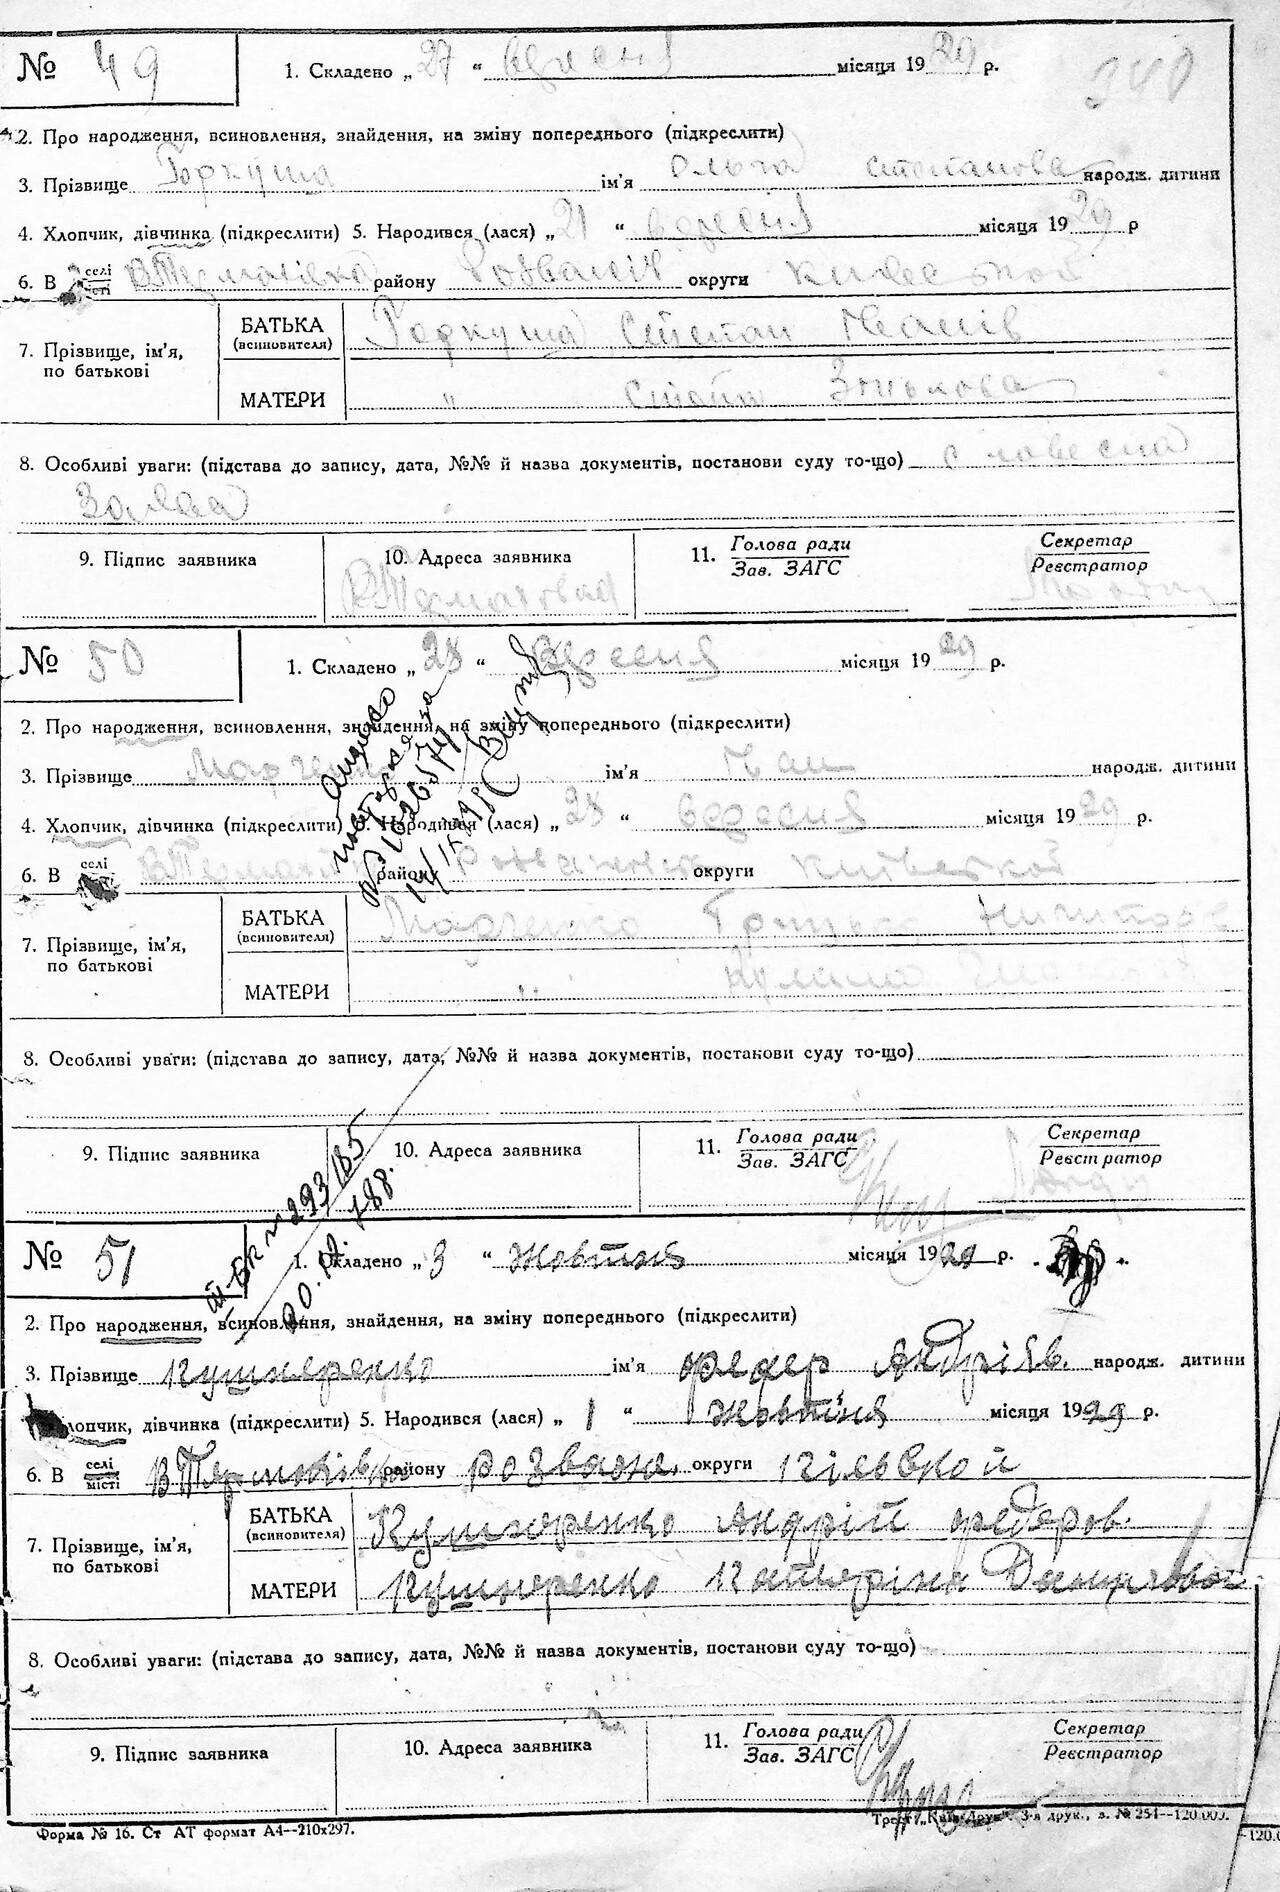 № 49 1. Складено „27“ вересня місяця 1929 р. 340
2. Про народження, всиновлення, знайдення, на зміну попереднього (підкреслити)
3. Прізвище Горкуша ім'я Ольга Степанова народж. дитини
4. Хлопчик, дівчинка (підкреслити) 5. Народився (лася) „21“ вересня місяця 1929 р
6. В селі місті В Термахівка району Розважів округи
7. Прізвище, ім'я, по батькові
БАТЬКА (всиновителя) Горкуша Степан Іванів
МАТЕРИ "
8. Особливі уваги: (підстава до запису, дата, №№ й назва документів, постанови суду то-що) словесна
Заява
9. Підпис заявника 10. Адреса заявника 11. Голова ради Зав. ЗАГС Секретар Реєстратор
№ 50 1. Складено „28“ вересня місяця 1929 р.
2. Про народження, всиновлення, знайдення, на зміну попереднього (підкреслити)
3. Прізвище Марченко ім'я Іван народж. дитини
4. Хлопчик, дівчинка (підкреслити) 5. Народився (лася) „28“ вересня місяця 1929 р.
6. В селі району округи
7. Прізвище, ім'я, по батькові
БАТЬКА (всиновителя) Марченко Грицько
МАТЕРИ "
8. Особливі уваги: (підстава до запису, дата, №№ й назва документів, постанови суду то-що)
9. Підпис заявника 10. Адреса заявника 11. Голова ради Зав. ЗАГС Секретар Реєстратор
№ 51 1. Складено „3“ жовтня місяця 1929 р.
2. Про народження, всиновлення, знайдення, на зміну попереднього (підкреслити)
3. Прізвище Кушнаренко ім'я Федер Андріів. народж. дитини
Хлопчик, дівчинка (підкреслити) 5. Народився (лася) „1“ жовтня місяця 1929 р.
6. В селі місті В Термахівка району Розваж. округи
7. Прізвище, ім'я, по батькові
БАТЬКА (всиновителя) Кушнаренко Андрій Федеров.
МАТЕРИ Кушнаренко Катеріна Данилова
8. Особливі уваги: (підстава до запису, дата, №№ й назва документів, постанови суду то-що)
9. Підпис заявника 10. Адреса заявника 11. Голова ради Зав. ЗАГС Секретар Реєстратор
Форма № 16. Ст АТ формат А4—210х297. Трест „Київ-Друк“. 3-я друк., з. № 254—120.000.